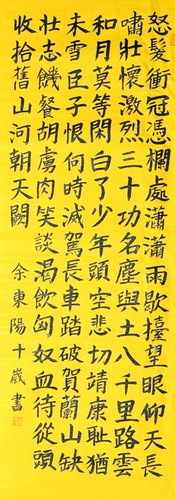 怒髮衝冠憑欄處瀟瀟雨歇擡望眼仰天長
嘯壯懷激烈三十功名塵與土八千里路雲
和月莫等閑白了少年頭空悲切靖康耻猶
未雪臣子恨何時滅駕長車踏破賀蘭山缺
壯志饑餐胡虜肉笑談渴飲匈奴血待從頭
收拾舊山河朝天闕
余東陽十歲書